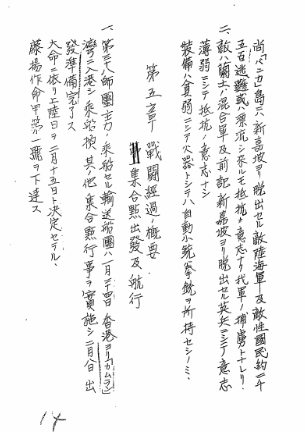 尚「バンカ」島ニハ新嘉坡ヲ脱出セル敵陸海軍及敵性國民約二千
五百遁難或ハ漂流シ来ルモ抵抗ノ意志ナク我軍ノ捕虜トナレリ
二、敵ハ蘭土ノ混合軍及前記新嘉坡ヲ脱出セル英兵ニシテ意志
薄弱ニシテ抵抗ノ意志ナシ
装備ハ貧弱ニシテ火器トシテハ自動小銃拳銃ヲ所持セシノミ
第五章 戰闘經過ノ概要
集合點出發及航行
一、第三十八師團主力ノ乗船セル輸送船團ハ一月二十四日香港ヨリ「カムラン」
灣ニ入港シ乗船檢其ノ他集合點行事ヲ實施シ二月八日出
發準備完了ス
大命ニ依リ上陸日ヲ二月十五日ト決定セラル
藤揚作命甲第 號ヲ下達ス
14